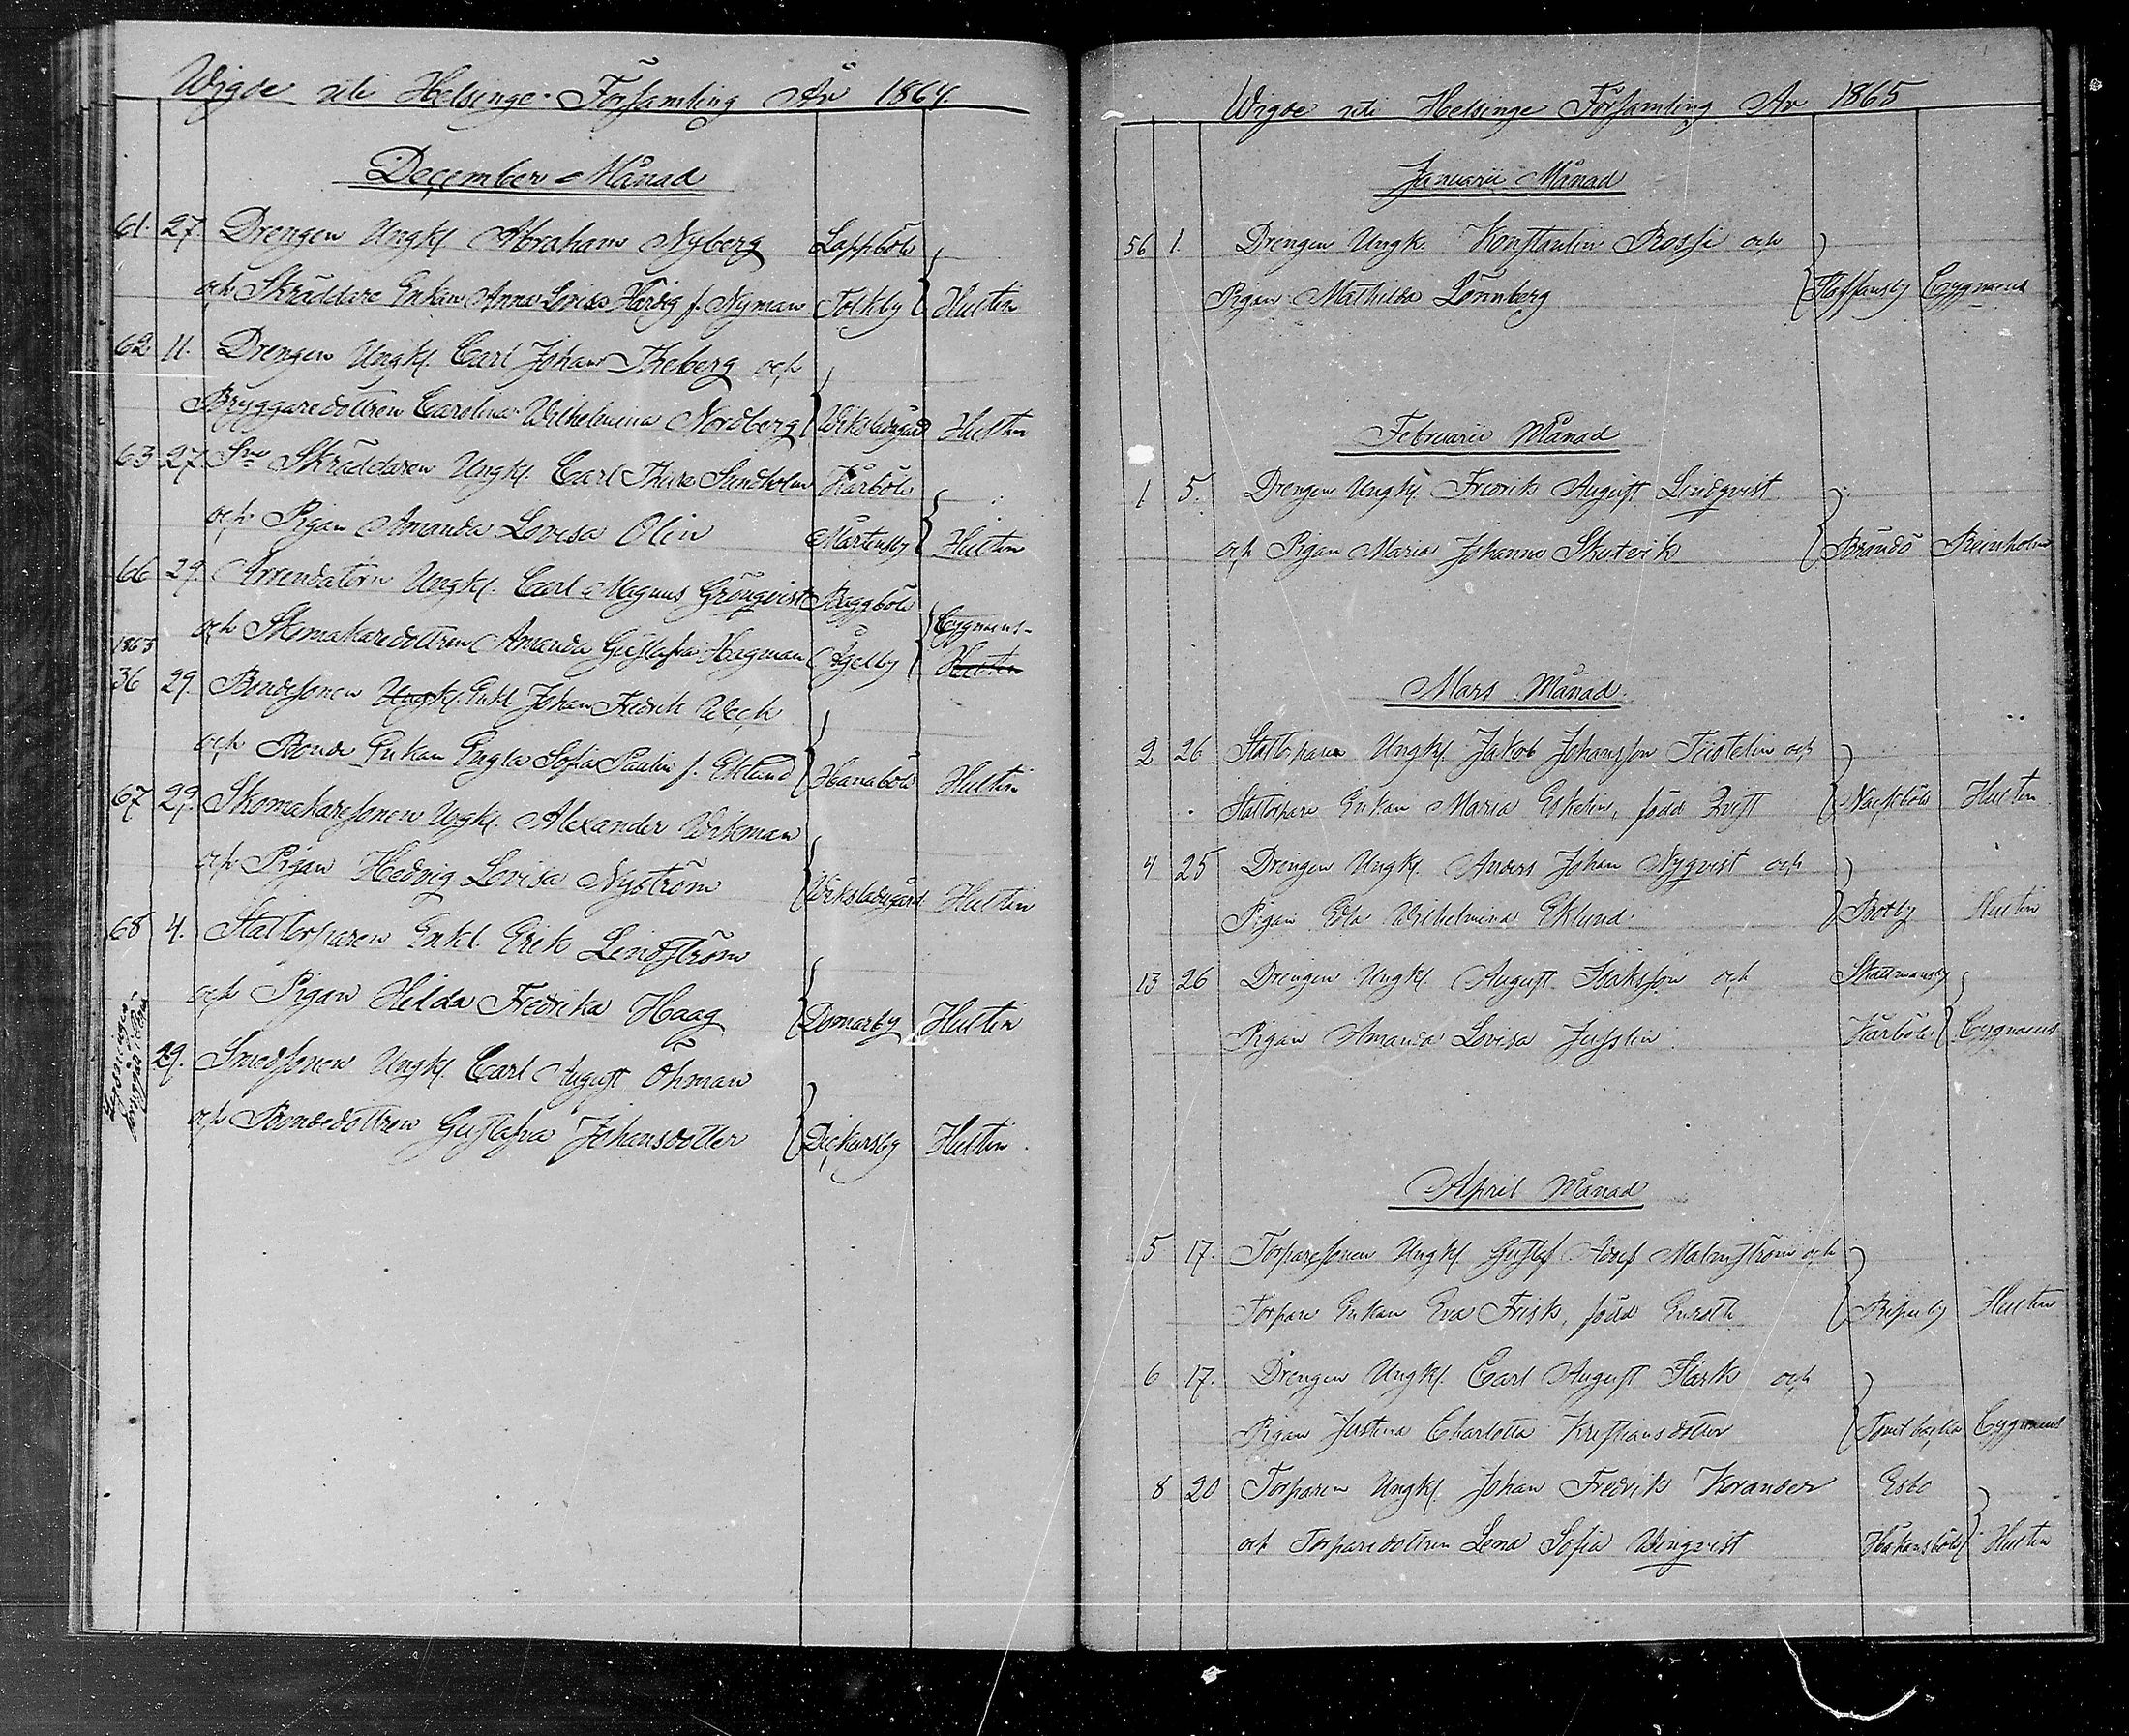 Wigde uti Helsinge Församling År 1864.
December Månad
61. 27. Drengen Ungk. Abraham Nyberg Lappböle
och Skräddare Enkan Anna Lovisa Hardig f. Nyman Tolkby Hultin
62 11. Drengen Ungk. Carl Johan Theberg och
Bryggaredottren Carolina Wilhelmina Nordberg Wiksladugård Hultin
63 27. Skräddaren Ungk. Carl Thure Sundholm Kårböle
och Pigan Amanda Lovisa Olin Mårtensby Hultin
66 29. Arrendatorn Ungk. Carl Magnus Grönqvist Baggböle Cygnæus
och Skomakaredottren Amanda Gustafva Hagman Ågelby Hultin
1863
36 29. Bondesonen Ungk. Enkl. Johan Fredrik Weck
och Bonde Enkan Engla Sofia Paulin f. Eklund Hanaböle Hultin
67 29. Skomakaresonen Ungk. Alexander Wikman
och Pigan Hedvig Lovisa Nyström Wiksladugård Hultin
68 4. Stattorparen Enkl. Erik Lindström
och Pigan Hilda Fredrika Haag Domarby Hultin
29. Smedsonen Ungk. Carl August Öhman
och Bondedottren Gustafva Johansdotter Dickursby Hultin
Wigde uti Helsinge Församling År 1865
Januarii Månad
56 1. Drengen Ungk. Konstantin Rosse och
Pigan Mathilda Lönnberg Staffansby Cygnæus
Februarii Månad
1 5. Drengen Ungk. Fredrik August Lindqvist
och Pigan Maria Johanna Skutvik Brändö Reinholm
Mars Månad
2 26 Stattorparen Ungk. Jakob Johansson Teotelin och
Stattorpare Enkan Maria Eskelin, född Qvist Nackböle Hultin
4 25 Drengen Ungk. Anders Johan Nyqvist och
Pigan Eva Wilhelmina Eklund Botby Hultin
13 26 Drengen Ungk. August Isaksson och Skattmansby
Pigan Amanda Lovisa Jusslin Kårböle Cygnæus
April Månad
5 17. Torparesonen Ungk. Gustaf Adolf Malmström och
Torpare Enkan Eva Frisk, född Enroth Ripuby Hultin
6 17. Drengen Ungk. Carl August Stark och
Pigan Justina Charlotta Kristiansdotter Tomtbacka Cygnæus
8 20 Torparen Ungk. Johan Fredrik Korander Esbo
och Torparedottren Lena Sofia Winqvist Håkansböle Hultin